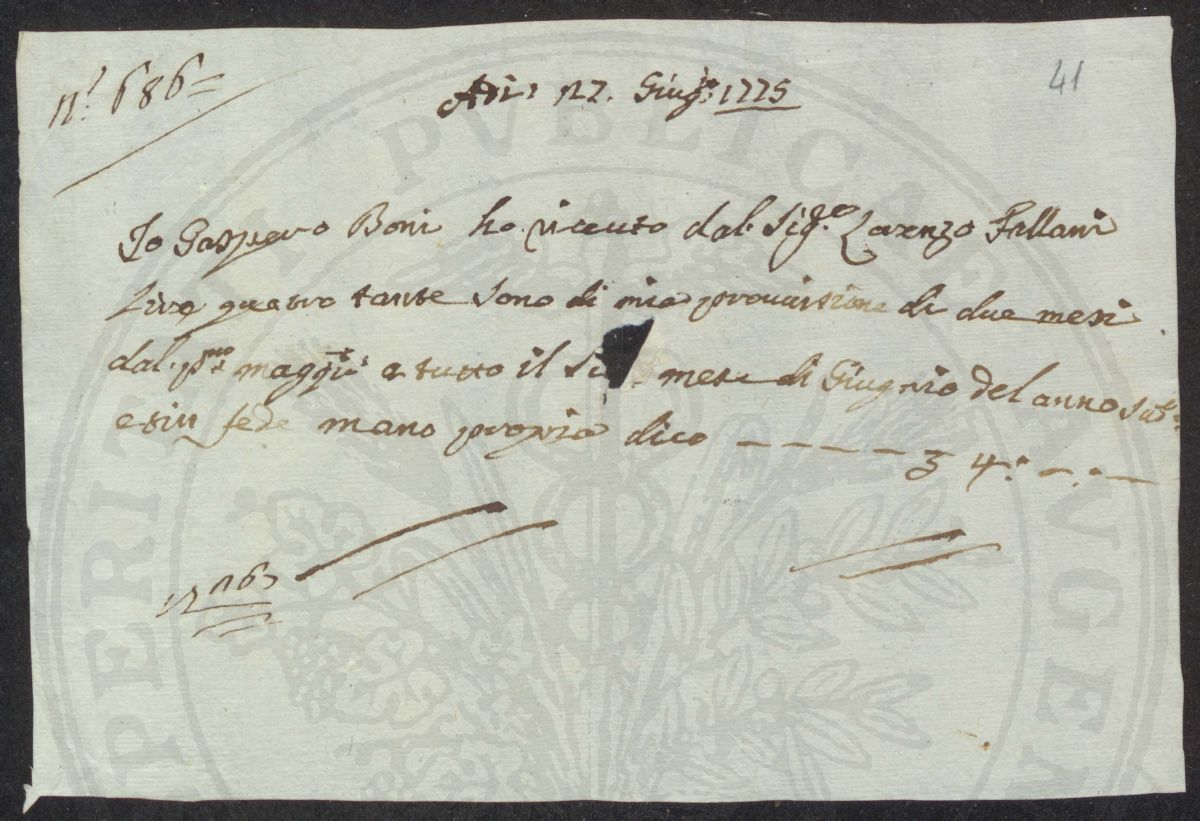 n.º 686=
41
Adi: 27. Giug.º: 1775
Io Gaspero Boni ho riceuto dal. Sig.º Lorenzo Fallani
Lire quatro tante sono di mia provuisione di due mesi
dal. p.mo maggio a tutto il mese di Giugnio del anno Sud.º
e sin fede mano propria dico — — — — — 4.